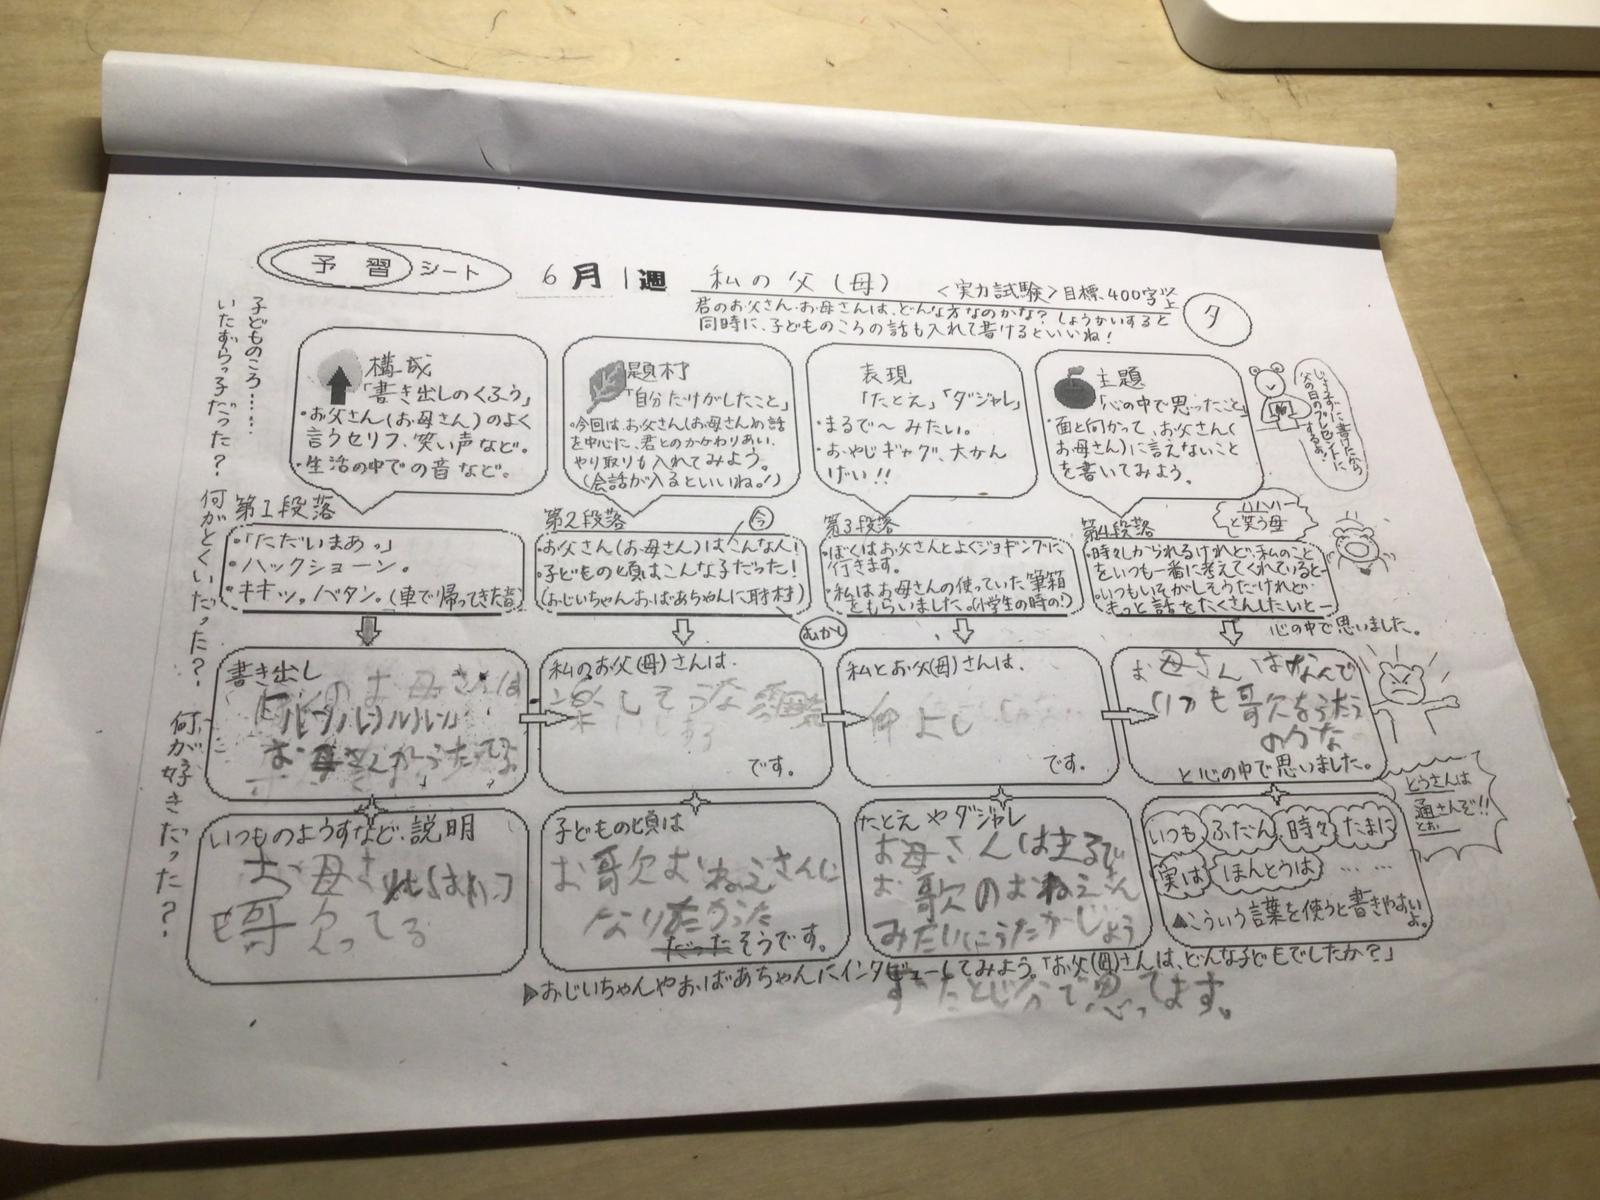 予習シート
6月1週
私の父(母)
<実力試験>目標、400字以上
君のお父さん・お母さんは、どんな方なのかな? しょうかいすると
同時に、子どものころの話も入れて書けるといいね!
タ
子どものころ……
いたずらっ子だった?
何がとくいだった?
何が好きだった?
構成
「書き出しのくふう」
・お父さん(お母さん)のよく
言うセリフ、笑い声など。
・生活の中での音など。
題材
「自分だけがしたこと」
・今回は、お父さん(お母さん)の話
を中心に、君とのかかわりあい、
やり取りも入れてみよう。
(会話が入るといいね!)
表現
「たとえ」「ダジャレ」
・まるで〜みたい。
・おやじギャグ、大かん
げい!!
主題
「心の中で思ったこと」
・面と向かって、お父さん(
お母さん)に言えないこと
を書いてみよう。
父の日のプレゼントに
するぞ!
第1段落
・「ただいまあっ」
・ハックショーン。
・キキッ。バタン。(車で帰ってきた音)
第2段落
今
・お父さん(お母さん)はこんな人!
・子どもの頃はこんな子だった!
(おじいちゃんおばあちゃんに取材)
むかし
第3段落
・ぼくはお父さんとよくジョギングに
行きます。
・私はお母さんの使っていた筆箱
をもらいました。(小学生の時の!)
第4段落
ハハハー
と笑う母
・時々しかられるけれど、私のこと
をいつも一番に考えてくれていると―
・いつもいそがしそうだけれど
もっと話をたくさんしたいと―
心の中で思いました。
書き出し
お母さんがうたってる
私のお父(母)さんは、
楽してそうな
です。
私とお父(母)さんは、
仲よし
です。
お母さんはなんで
いつも歌をうたう
のかな
と心の中で思いました。
いつものようすなど、説明
お母さんはいつ
も歌ってる
子どもの頃は
お歌おねえさんに
なりたかった
だったそうです。
たとえやダジャレ
お母さんはまるで
お歌のおねえさん
みたいにうたがじょう
ずったとじ分で思ってます。
いつも ふだん 時々 たまに
実は ほんとうは ……
▲こういう言葉を使うと書きやすい
よ。
とうさんは
通さんぞ!!
とお
▶おじいちゃんやおばあちゃんにインタビューしてみよう。「お父(母)さんは、どんな子どもでしたか?」